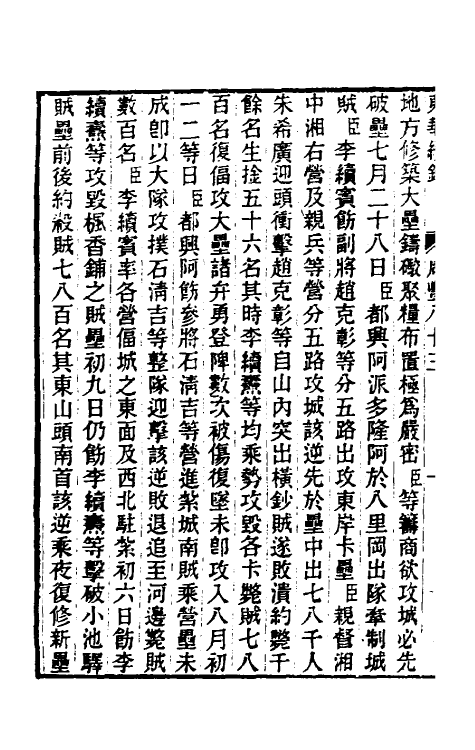 地方修築大壘鑄礮聚糧布置極爲嚴密臣等籌商欲攻城必先
破壘七月二十八日臣都興阿派多隆阿於八里岡出隊牽制城
賊臣李續賓飭副將趙克彰等分五路出攻東岸卡壘臣親督湘
中湘右營及親兵等營分五路攻城該逆先於壘中出七八千人
朱希廣迎頭衝擊趙克彰等自山內突出橫鈔賊遂敗潰約斃千
餘名生捦五十六名其時李續燾等均乘勢攻毀各卡斃賊七八
百名復偪攻大壘諸弁勇登陴數次被傷復墜未卽攻入八月初
一二等日臣都興阿飭參將石淸吉等營進紮城南賊乘營壘未
成卽以大隊攻撲石淸吉等整隊迎擊該逆敗退追至河邊斃賊
數百名臣李續賓率各營偪城之東面及西北駐紮初六日飭李
續燾等攻毀楓香鋪之賊壘初九日仍飭李續燾等擊破小池驛
賊壘前後約殺賊七八百名其東山頭南首該逆乘夜復修新壘